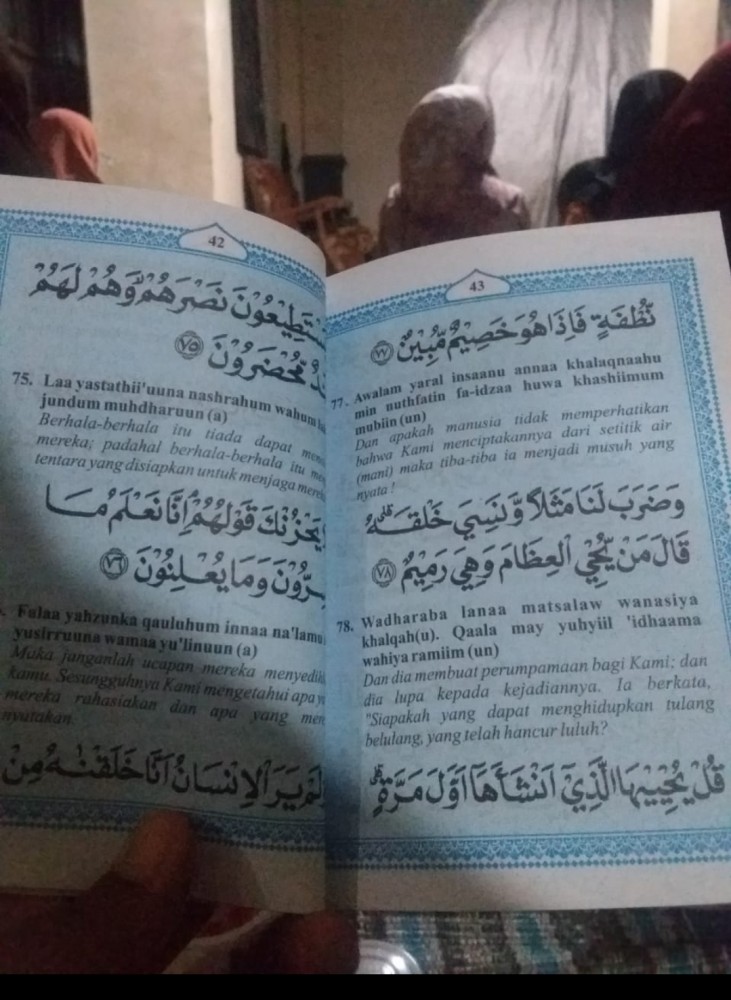 42
يَسْتَطِيْعُوْنَ نَصْرَهُمْ وَهُمْ لَهُمْ
مُّحْضَرُوْنَ ٧٥
75. Laa yastathii'uuna nashrahum wahum
jundum muhdharuun (a)
Berhala-berhala itu tiada dapat
mereka; padahal berhala-berhala itu
tentara yang disiapkan untuk menjaga
يَحْزُنْكَ قَوْلُهُمْ اِنَّا نَعْلَمُ مَا
يُسِرُّوْنَ وَمَا يُعْلِنُوْنَ ٧٦
Falaa yahzunka qauluhum innaa na'lamu
yusirruuna wamaa yu'linuun (a)
Maka janganlah ucapan mereka
kamu. Sesungguhnya Kami mengetahui apa
mereka rahasiakan dan apa yang
nyatakan.
اَوَلَمْ يَرَ الْاِنْسَانُ اَنَّا خَلَقْنٰهُ مِنْ
43
نُّطْفَةٍ فَاِذَا هُوَ خَصِيْمٌ مُّبِيْنٌ ٧٧
77. Awalam yaral insaanu annaa khalaqnaahu
min nuthfatin fa-idzaa huwa khashiimum
mubiin (un)
Dan apakah manusia tidak memperhatikan
bahwa Kami menciptakannya dari setitik air
(mani) maka tiba-tiba ia menjadi musuh yang
nyata !
وَضَرَبَ لَنَا مَثَلًا وَّنَسِيَ خَلْقَهٗ ۗ
قَالَ مَنْ يُّحْيِ الْعِظَامَ وَهِيَ رَمِيْمٌ ٧٨
78. Wadharaba lanaa matsalaw wanasiya
khalqah(u). Qaala may yuhyiil 'idhaama
wahiya ramiim (un)
Dan dia membuat perumpamaan bagi Kami; dan
dia lupa kepada kejadiannya. Ia berkata,
"Siapakah yang dapat menghidupkan tulang
belulang, yang telah hancur luluh?
قُلْ يُحْيِيْهَا الَّذِيْٓ اَنْشَاَهَآ اَوَّلَ مَرَّةٍ ۗ